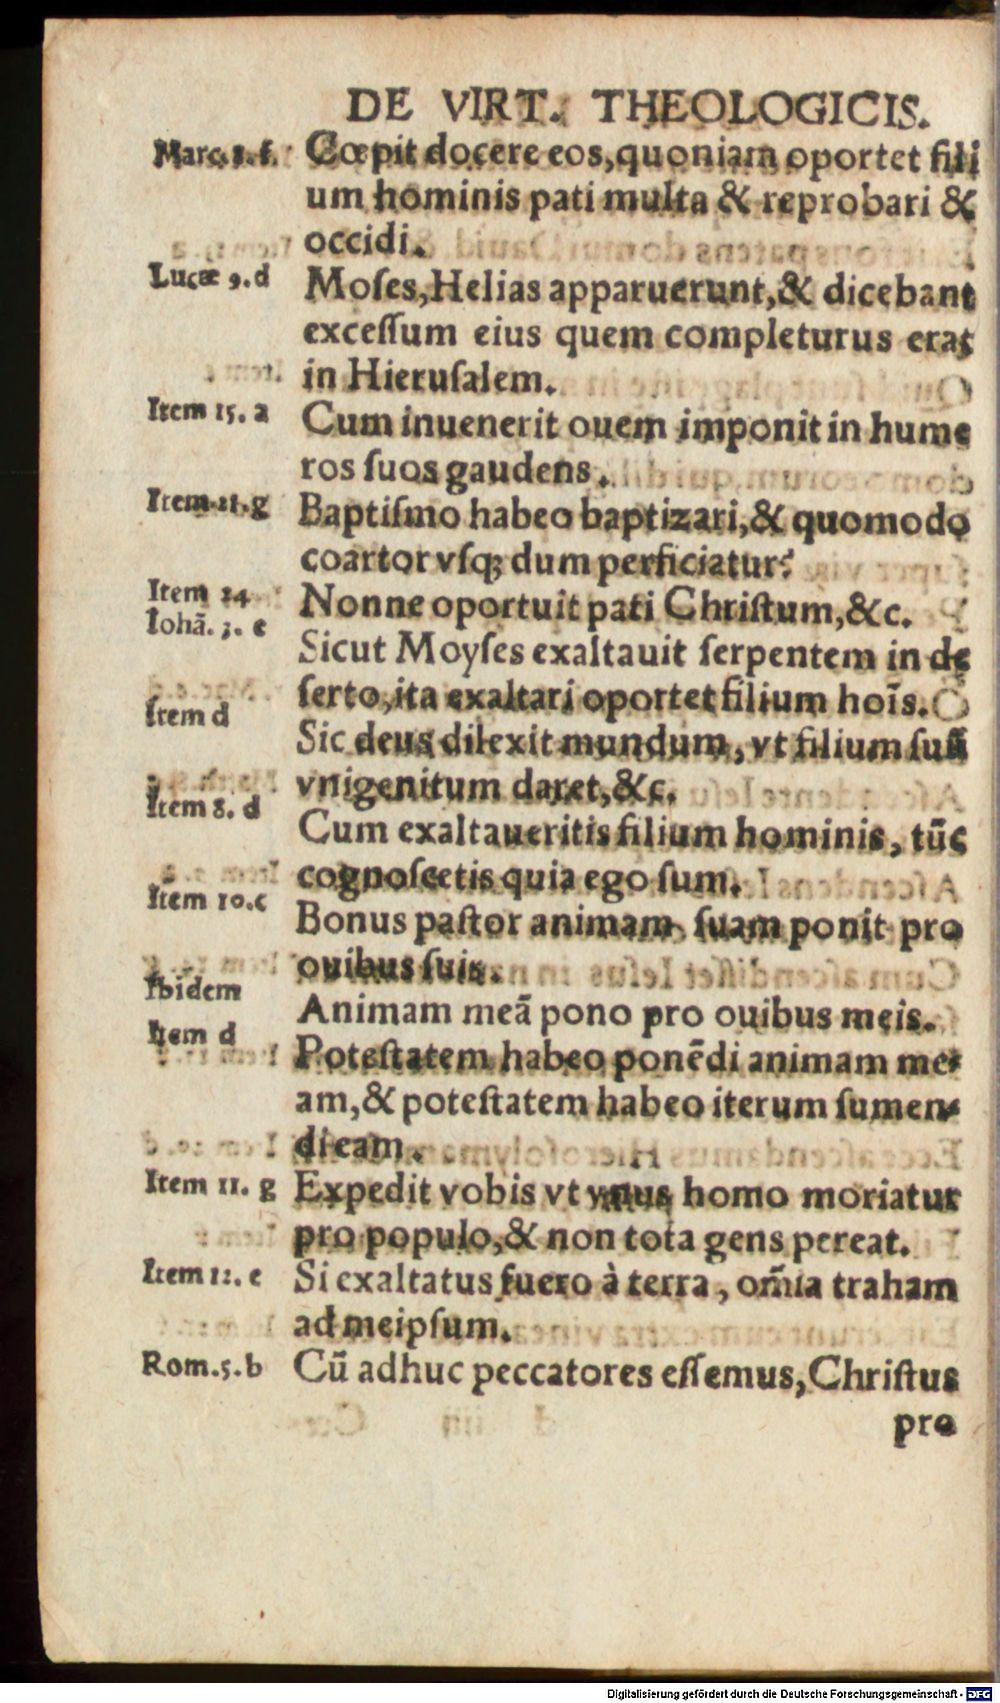 DE VIRT. THEOLOGICIS.
Marc. 8. f. Cœpit docere eos, quoniam oportet fili
um hominis pati multa & reprobari &
occidi.
Lucæ 9. d Moſes, Helias apparuerunt, & dicebant
exceſſum eius quem completurus erat
in Hieruſalem.
Item 15. a Cum inuenerit ouem imponit in hume
ros ſuos gaudens.
Item g Baptiſmo habeo baptizari, & quomodo
coartor vſq; dum perficiatur?
Item 24 Nonne oportuit pati Chriſtum, &c.
Iohã. 3. e Sicut Moyſes exaltauit ſerpentem in de
ſerto, ita exaltari oportet filium hoīs.
Item d Sic deus dilexit mundum, vt filium ſuũ
vnigenitum daret, &c.
Item 8. d Cum exaltaueritis filium hominis, tũc
cognoſcetis quia ego ſum.
Item 10. c Bonus paſtor animam ſuam ponit pro
ouibus ſuis.
Ibidem Animam meã pono pro ouibus meis.
Item d Poteſtatem habeo ponẽdi animam me-
am, & poteſtatem habeo iterum ſumen-
di eam.
Item 11. g Expedit vobis vt vnus homo moriatur
pro populo, & non tota gens pereat.
Item 12. e Si exaltatus fuero à terra, om̃ia traham
ad meipſum.
Rom. 5. b Cũ adhuc peccatores eſſemus, Chriſtus
pro
Digitalisierung gefördert durch die Deutsche Forschungsgemeinschaft - DFG